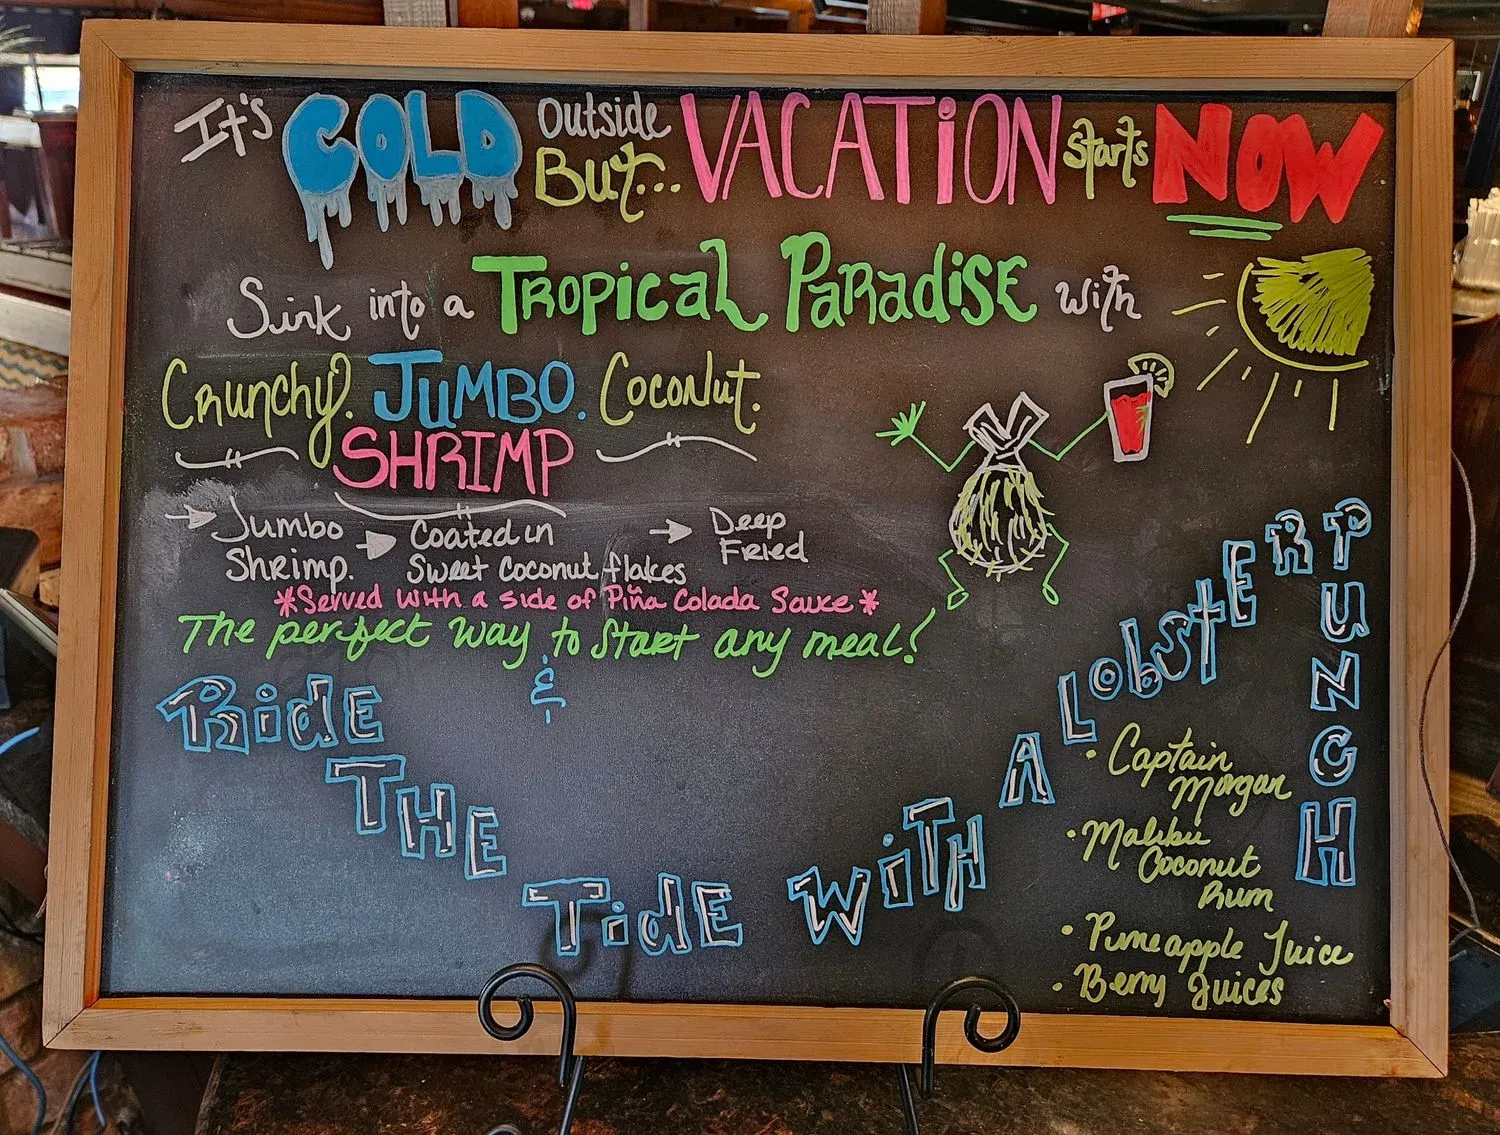 It's COLD Outside But... VACATiON starts NOW
Sink into a Tropical Paradise with
Crunchy. JUMBO. Coconut.
SHRIMP
Jumbo Shrimp.
Coated in Sweet Coconut flakes
Deep Fried
*Served with a side of Piña Colada Sauce*
The perfect way to start any meal!
&
Ride THE TidE WiTH A LobstER PUNCH
• Captain Morgan
• Malibu Coconut Rum
• Pineapple Juice
• Berry Juices